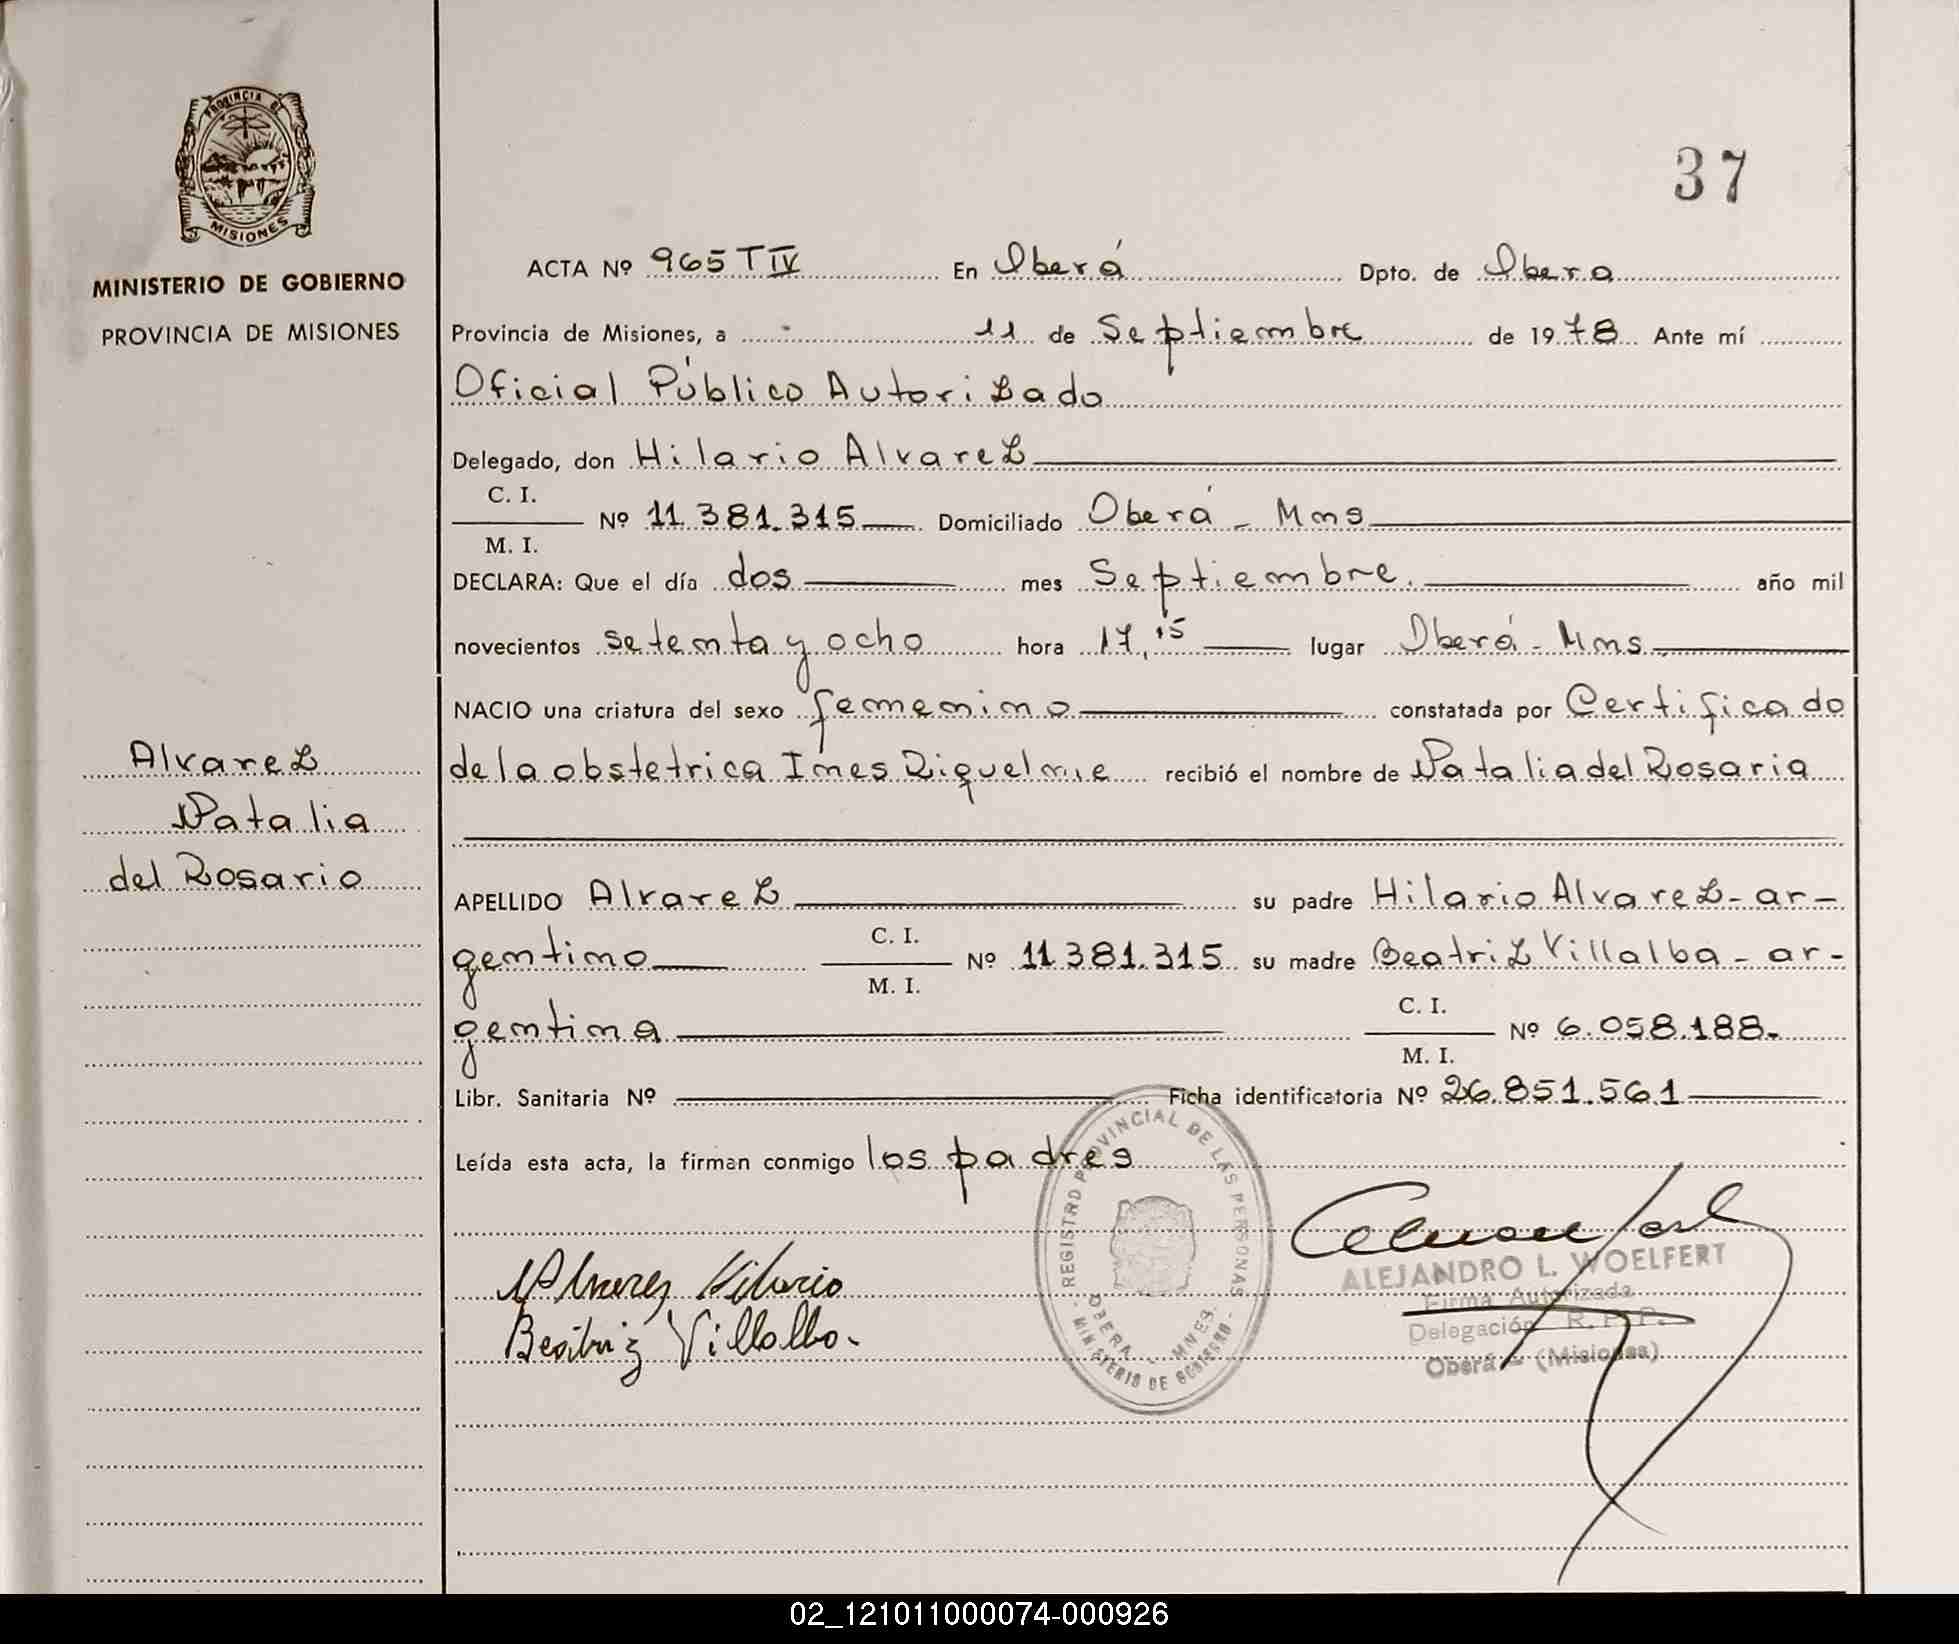 PROVINCIA DE
MISIONES
MINISTERIO DE GOBIERNO
PROVINCIA DE MISIONES
37
ACTA Nº 965 T IV En Oberá Dpto. de Obera
Provincia de Misiones, a - 11 de Septiembre de 1978 Ante mí
Oficial Público Autorizado
Delegado, don Hilario Alvarez
C. I.
Nº 11.381.315 Domiciliado Oberá - Mns
M. I.
DECLARA: Que el día dos mes Septiembre. año mil
novecientos setenta y ocho hora 17,15 lugar Oberá - Mns
NACIO una criatura del sexo femenino constatada por Certificado
de la obstetrica Ines Riquelme recibió el nombre de Natalia del Rosaria
Alvarez
Natalia
del Rosario
APELLIDO Alvarez su padre Hilario Alvarez - ar-
gentino C. I. Nº 11.381.315 su madre Beatriz Villalba - ar-
M. I.
gentina C. I. Nº 6.058.188.
M. I.
Libr. Sanitaria Nº Ficha identificatoria Nº 26.851.561
Leída esta acta, la firman conmigo los padres
Alvarez Hilario
Beatriz Villalba.
REGISTRO PROVINCIAL DE LAS PERSONAS
OBERA - MNES.
MINISTERIO DE GOBIERNO
ALEJANDRO L. WOELFERT
Firma Autorizada
Delegación R. P. P.
Oberá - (Misiones)
02_121011000074-000926